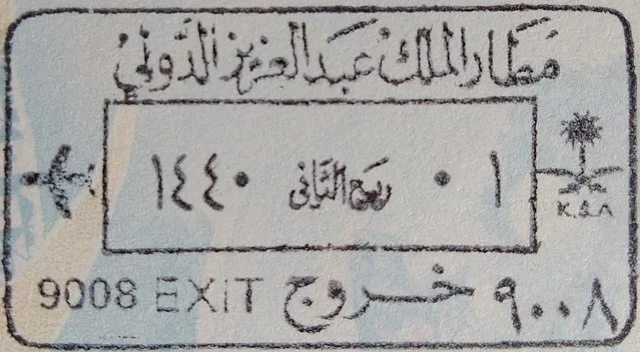 مطار الملك عبد العزيز الدولي
٠١ ربيع الثاني ١٤٤٠
K.S.A
9008 EXIT خروج ٩٠٠٨